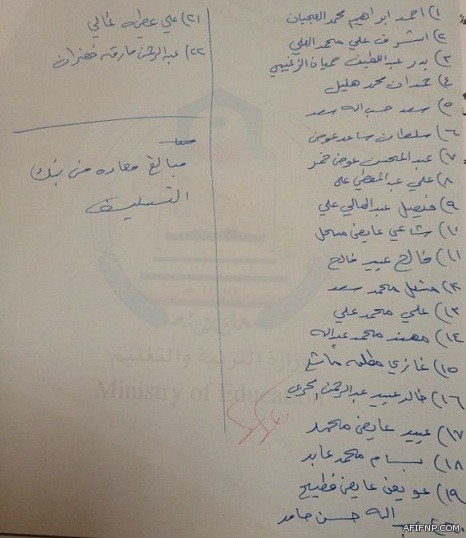 ١) احمد ابراهيم محمد العجيان
٢) اشرف علي محمد العلي
٣) بدر عبداللطيف حمياة الزغيبي
٤) حمدان محمد هليل
٥) سعد حسب اله سعد
٦) سلطان ساعد عوض
٧) عبدالمحسن عوض خضر
٨) علي عبدالمعطي علي
٩) فيصل عبدالعالي علي
١٠) شاعي عايض مسحل
١١) فالح عبيد فالح
١٢) مشعل محمد سعد
١٣) علي محمد علي
١٤) مهند محمد عبداله
١٥) غازي مطلق
١٦) خالد عبيد عبدالرحمن
١٧) عبيد عايض محمد
١٨) بسام محمد عابد
١٩) عويض عايض فطيح
اله حسن حامد
٢١) علي عطيه غالي
٢٢) عبدالرحمن مارق خضران
مبالغ معاده من بنك
التسليف
وزارة التربية والتعليم
Ministry of Education
AFIFNP.COM